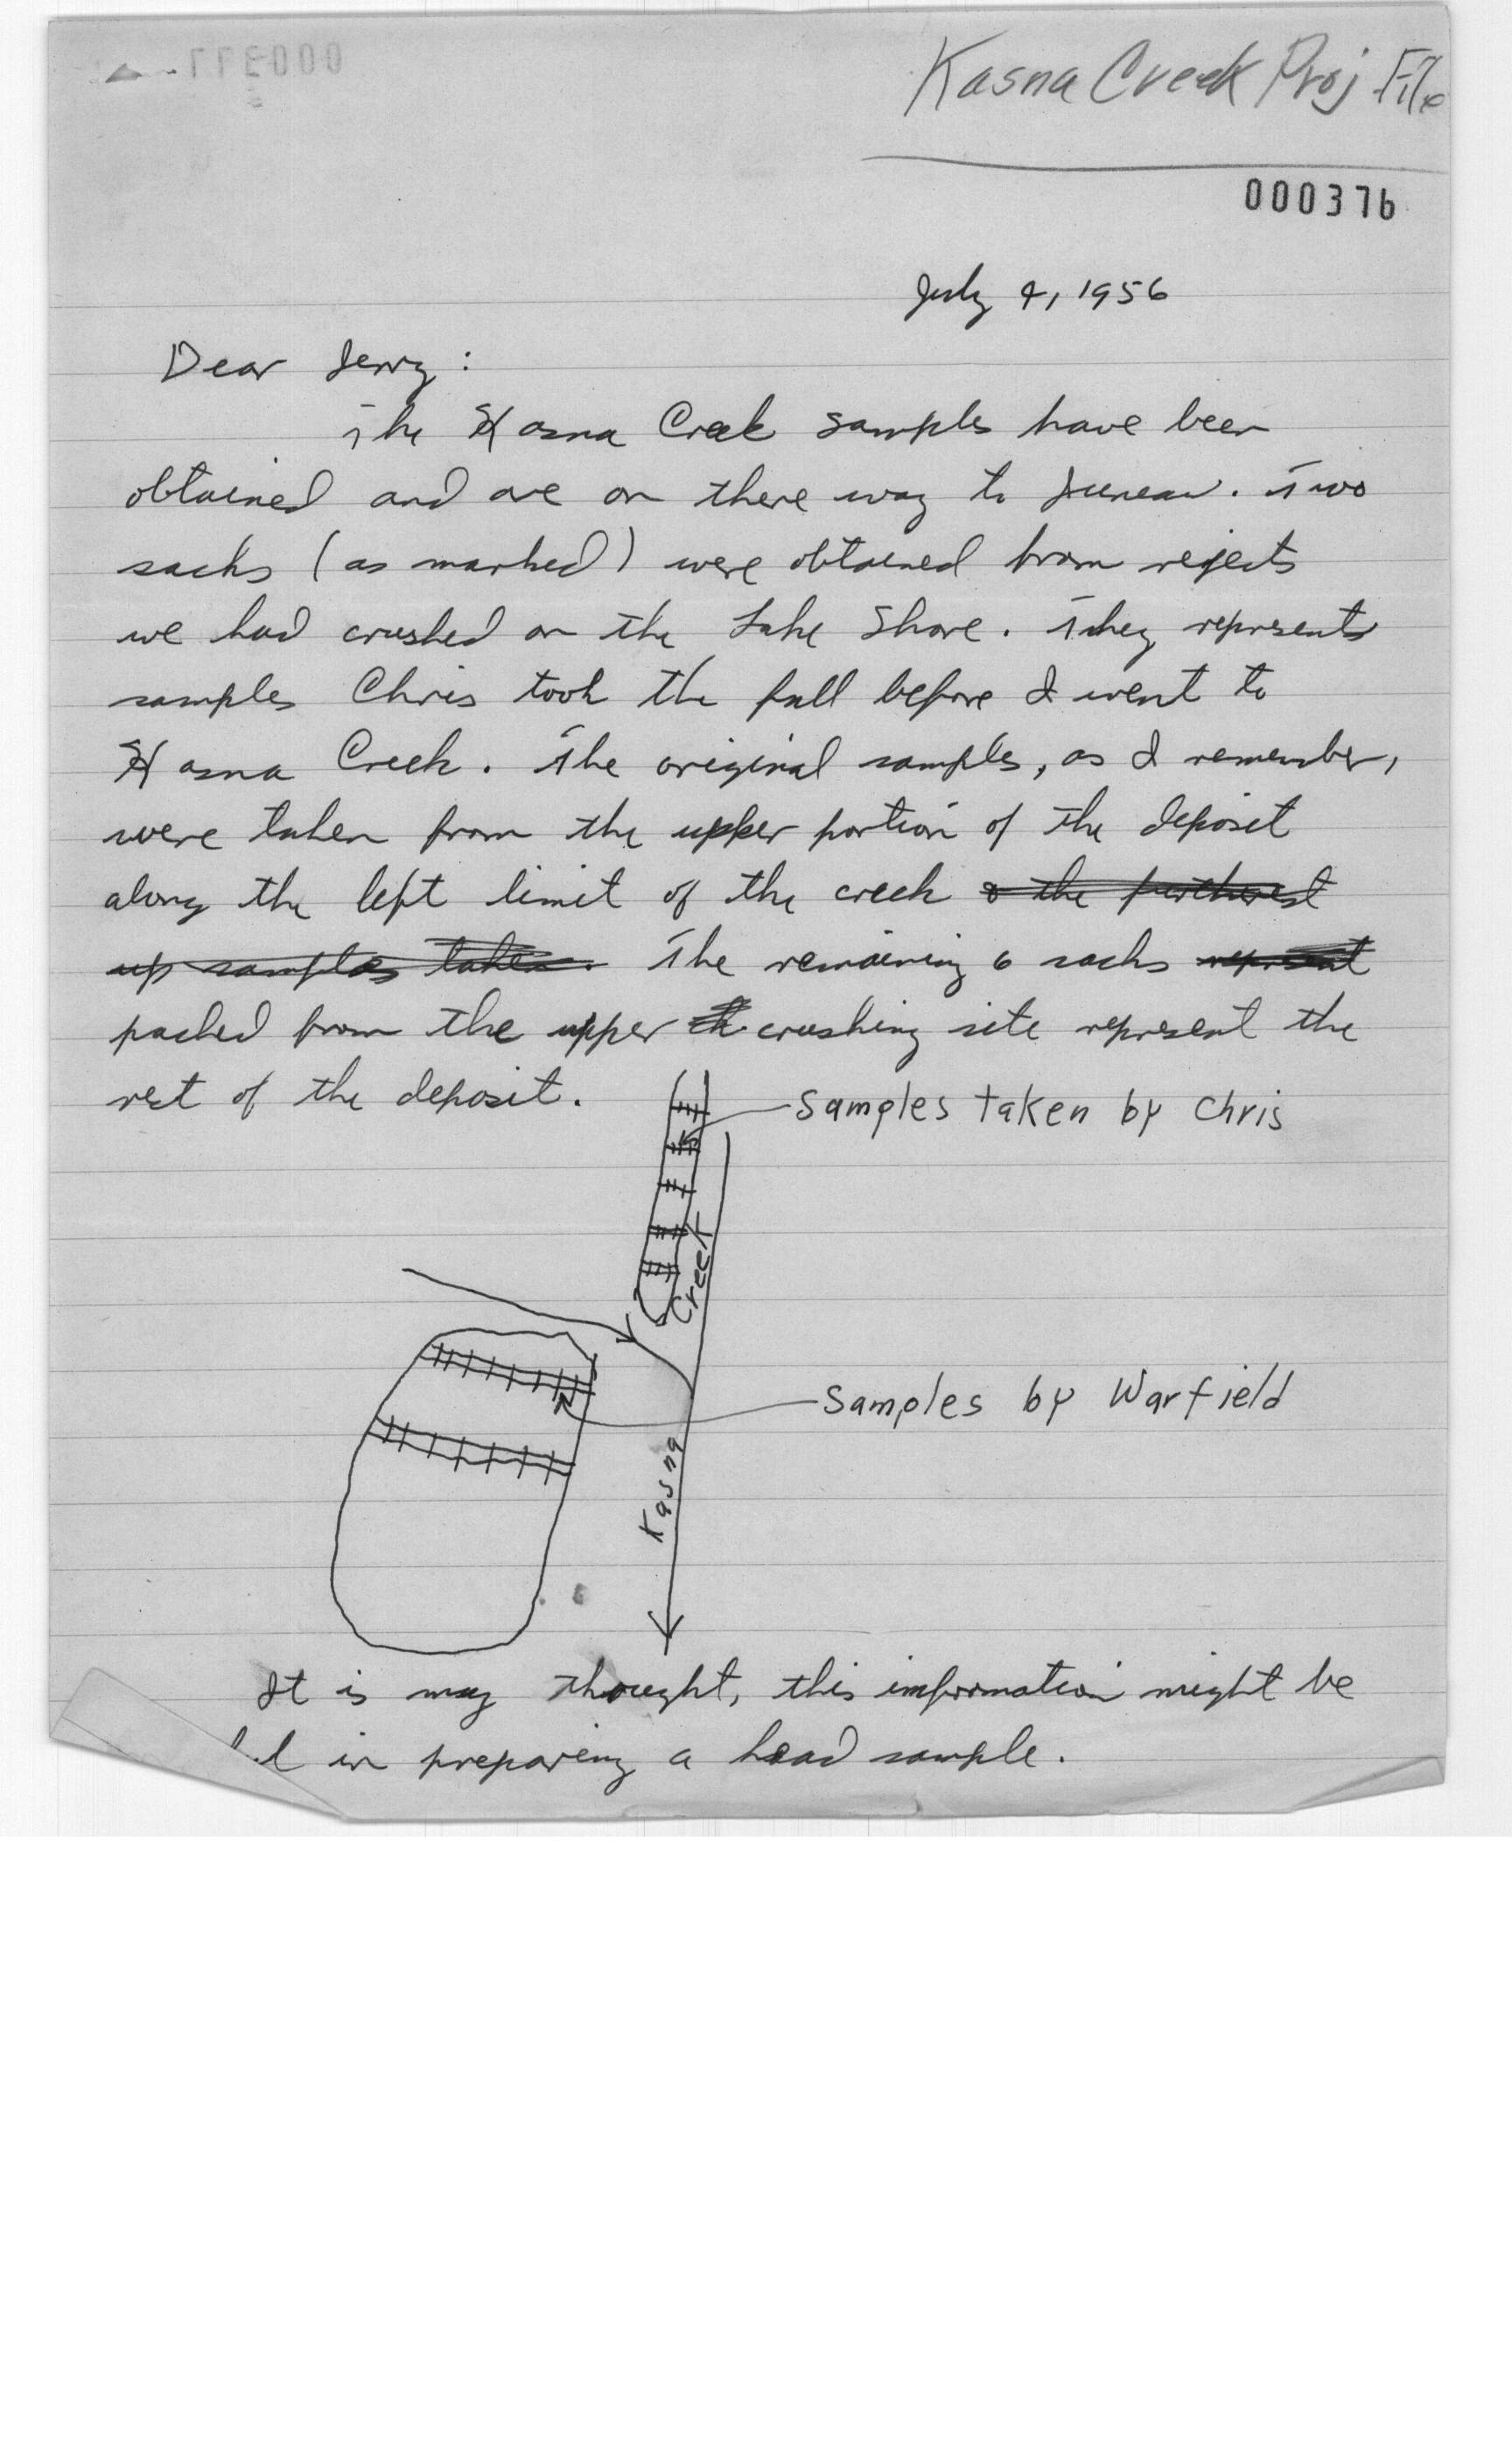 Kasna Creek Proj File
000376
July 4, 1956
Dear Jerry:
The Kasna Creek samples have been
obtained and are on there way to Juneau. Two
sacks (as marked) were obtained from rejects
we had crushed on the Lake Shore. They represents
samples Chris took the fall before I went to
Kasna Creek. The original samples, as I remember,
were taken from the upper portion of the deposit
along the left limit of the creek the furtherest
up samples taken. The remaining 6 sacks represent
packed from the upper crushing site represent the
rest of the deposit.
Samples taken by Chris
Creek
Samples by Warfield
Kasna
It is my thought, this information might be
in preparing a head sample.